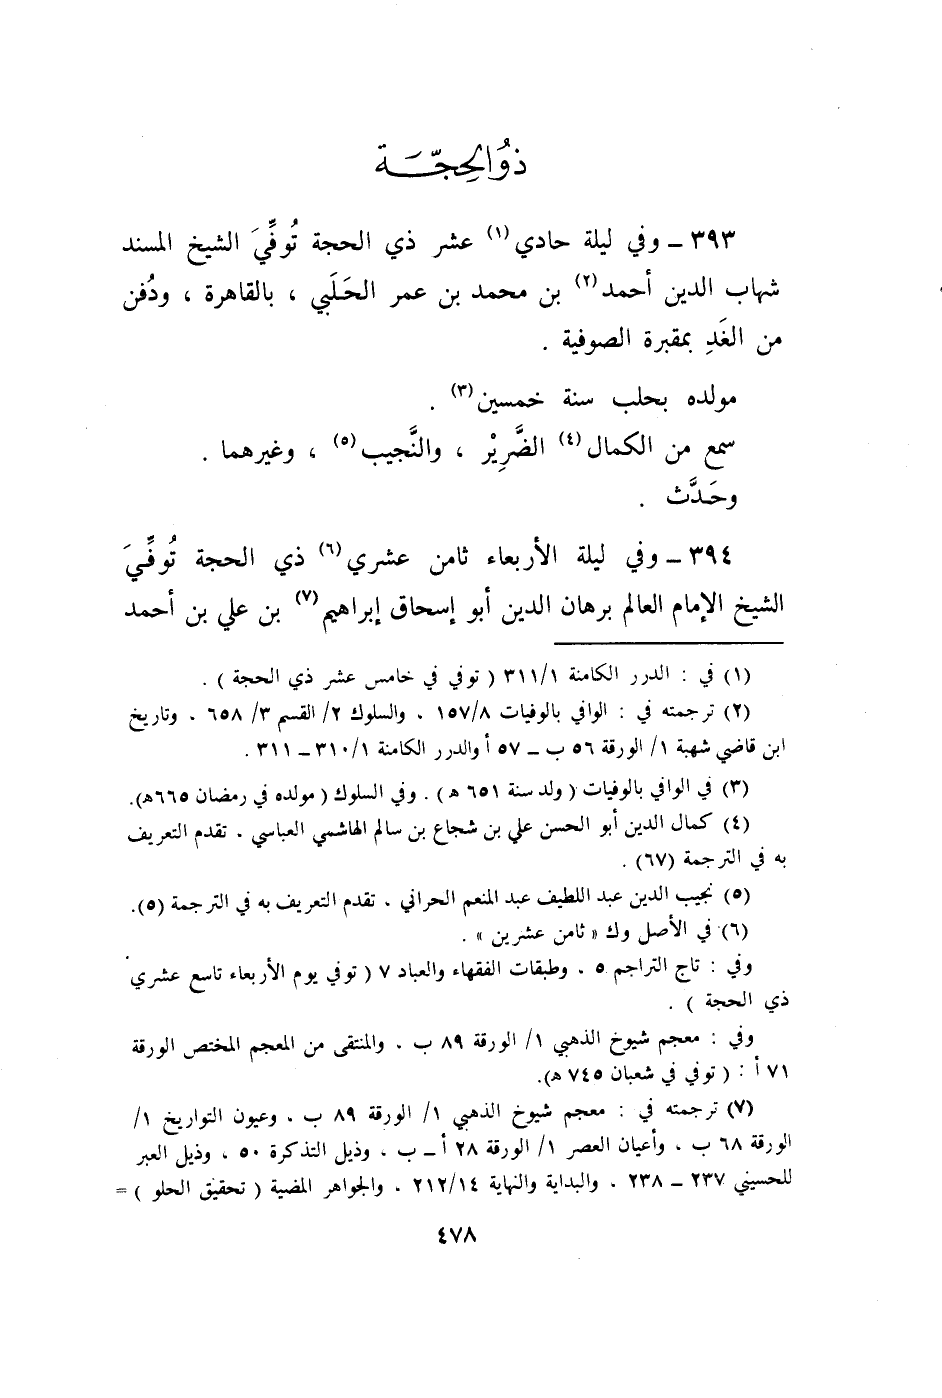 ذُو الحِجَّـــة
٣٩٣ ـ وفي ليلة حادي(١) عشر ذي الحجة تُوفِّيَ الشيخ المسند
شهاب الدين أحمد(٢) بن محمد بن عمر الحَلَبي ، بالقاهرة ، ودُفن
من الغَدِ بمقبرة الصوفية .
مولده بحلب سنة خمسين(٣) .
سمع من الكمال(٤) الضَّرِيْر ، والنَّجيب(٥) ، وغيرهما .
وحَدَّث .
٣٩٤ ـ وفي ليلة الأربعاء ثامن عشري(٦) ذي الحجة تُوفِّيَ
الشيخ الإمام العالم برهان الدين أبو إسحاق إبراهيم(٧) بن علي بن أحمد
(١) في : الدرر الكامنة ٣١١/١ ( توفي في خامس عشر ذي الحجة ) .
(٢) ترجمته في : الوافي بالوفيات ١٥٧/٨ . والسلوك ٢/ القسم ٣/ ٦٥٨ . وتاريخ
ابن قاضي شهبة ١/ الورقة ٥٦ ب ـ ٥٧ أ والدرر الكامنة ٣١٠/١ ـ ٣١١ .
(٣) في الوافي بالوفيات ( ولد سنة ٦٥١ هـ ) . وفي السلوك ( مولده في رمضان ٦٦٥هـ).
(٤) كمال الدين أبو الحسن علي بن شجاع بن سالم الهاشمي العباسي . تقدم التعريف
به في الترجمة (٦٧) .
(٥) نجيب الدين عبد اللطيف عبد المنعم الحراني . تقدم التعريف به في الترجمة (٥).
(٦) في الأصل وك « ثامن عشرين » .
وفي : تاج التراجم ٥ . وطبقات الفقهاء والعباد ٧ ( توفي يوم الأربعاء تاسع عشري
ذي الحجة ) .
وفي : معجم شيوخ الذهبي ١/ الورقة ٨٩ ب . والمنتقى من المعجم المختص الورقة
٧١ أ : ( توفي في شعبان ٧٤٥ هـ).
(٧) ترجمته في : معجم شيوخ الذهبي ١/ الورقة ٨٩ ب . وعيون التواريخ ١/
الورقة ٦٨ ب . وأعيان العصر ١/ الورقة ٢٨ أ ـ ب . وذيل التذكرة ٥٠ . وذيل العبر
للحسيني ٢٣٧ ـ ٢٣٨ . والبداية والنهاية ٢١٢/١٤ . والجواهر المضية ( تحقيق الحلو ) =
٤٧٨